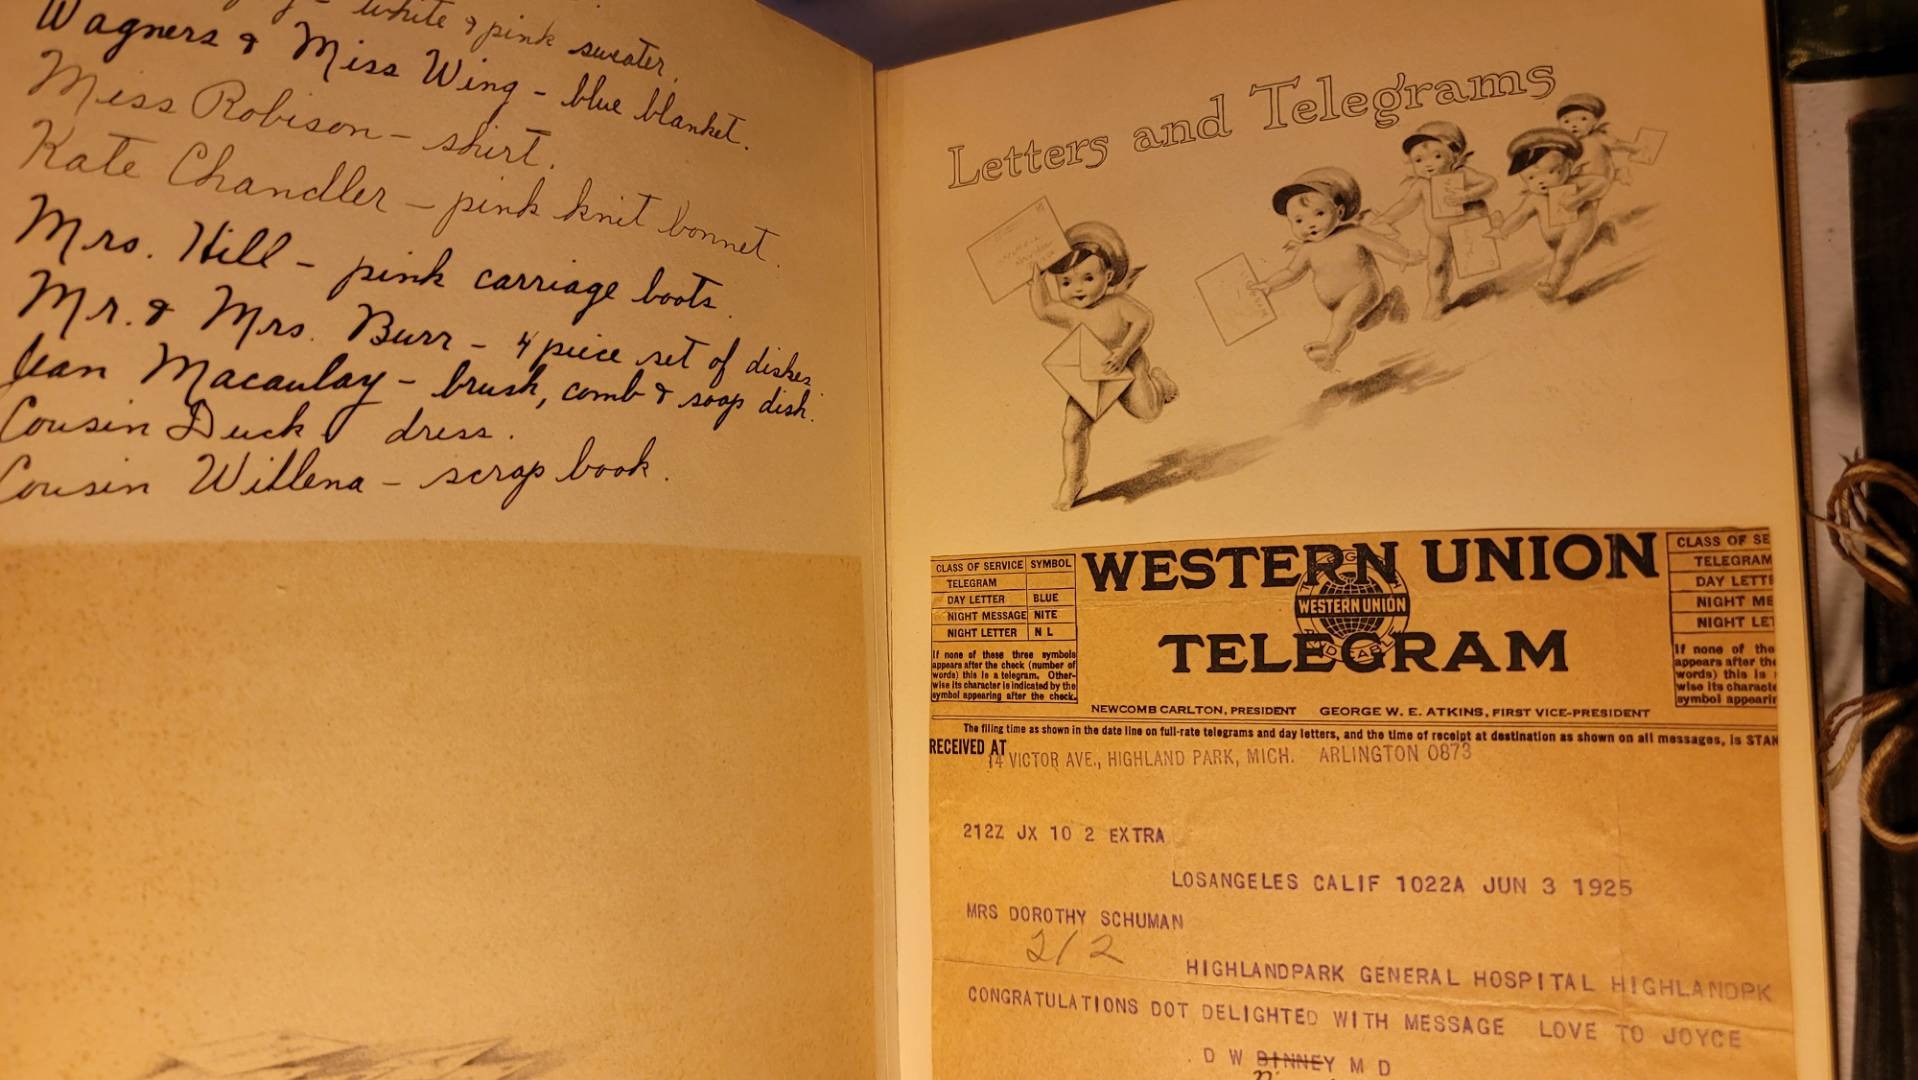 white & pink sweater.
Wagners & Miss Wing - blue blanket.
Miss Robison - shirt.
Kate Chandler - pink knit bonnet.
Mrs. Hill - pink carriage boots.
Mr. & Mrs. Burr - 4 piece set of dishes
Jean Macaulay - brush, comb & soap dish.
Cousin Duck dress.
Cousin Willena - scrap book.
Letters and Telegrams
CLASS OF SERVICE SYMBOL
TELEGRAM
DAY LETTER BLUE
NIGHT MESSAGE NITE
NIGHT LETTER N L
If none of these three symbols
appears after the check (number of
words) this is a telegram. Other-
wise its character is indicated by the
symbol appearing after the check.
WESTERN UNION
WESTERN UNION
TELEGRAM
NEWCOMB CARLTON, PRESIDENT GEORGE W. E. ATKINS, FIRST VICE-PRESIDENT
CLASS OF SE
TELEGRAM
DAY LETT
NIGHT ME
NIGHT LET
If none of the
appears after the
words) this is
wise its characte
symbol appearin
The filing time as shown in the date line on full-rate telegrams and day letters, and the time of receipt at destination as shown on all messages, is STAN
RECEIVED AT
14 VICTOR AVE., HIGHLAND PARK, MICH. ARLINGTON 0873
212Z JX 10 2 EXTRA
LOSANGELES CALIF 1022A JUN 3 1925
MRS DOROTHY SCHUMAN
212
HIGHLANDPARK GENERAL HOSPITAL HIGHLANDPK
CONGRATULATIONS DOT DELIGHTED WITH MESSAGE LOVE TO JOYCE
D W BINNEY M D